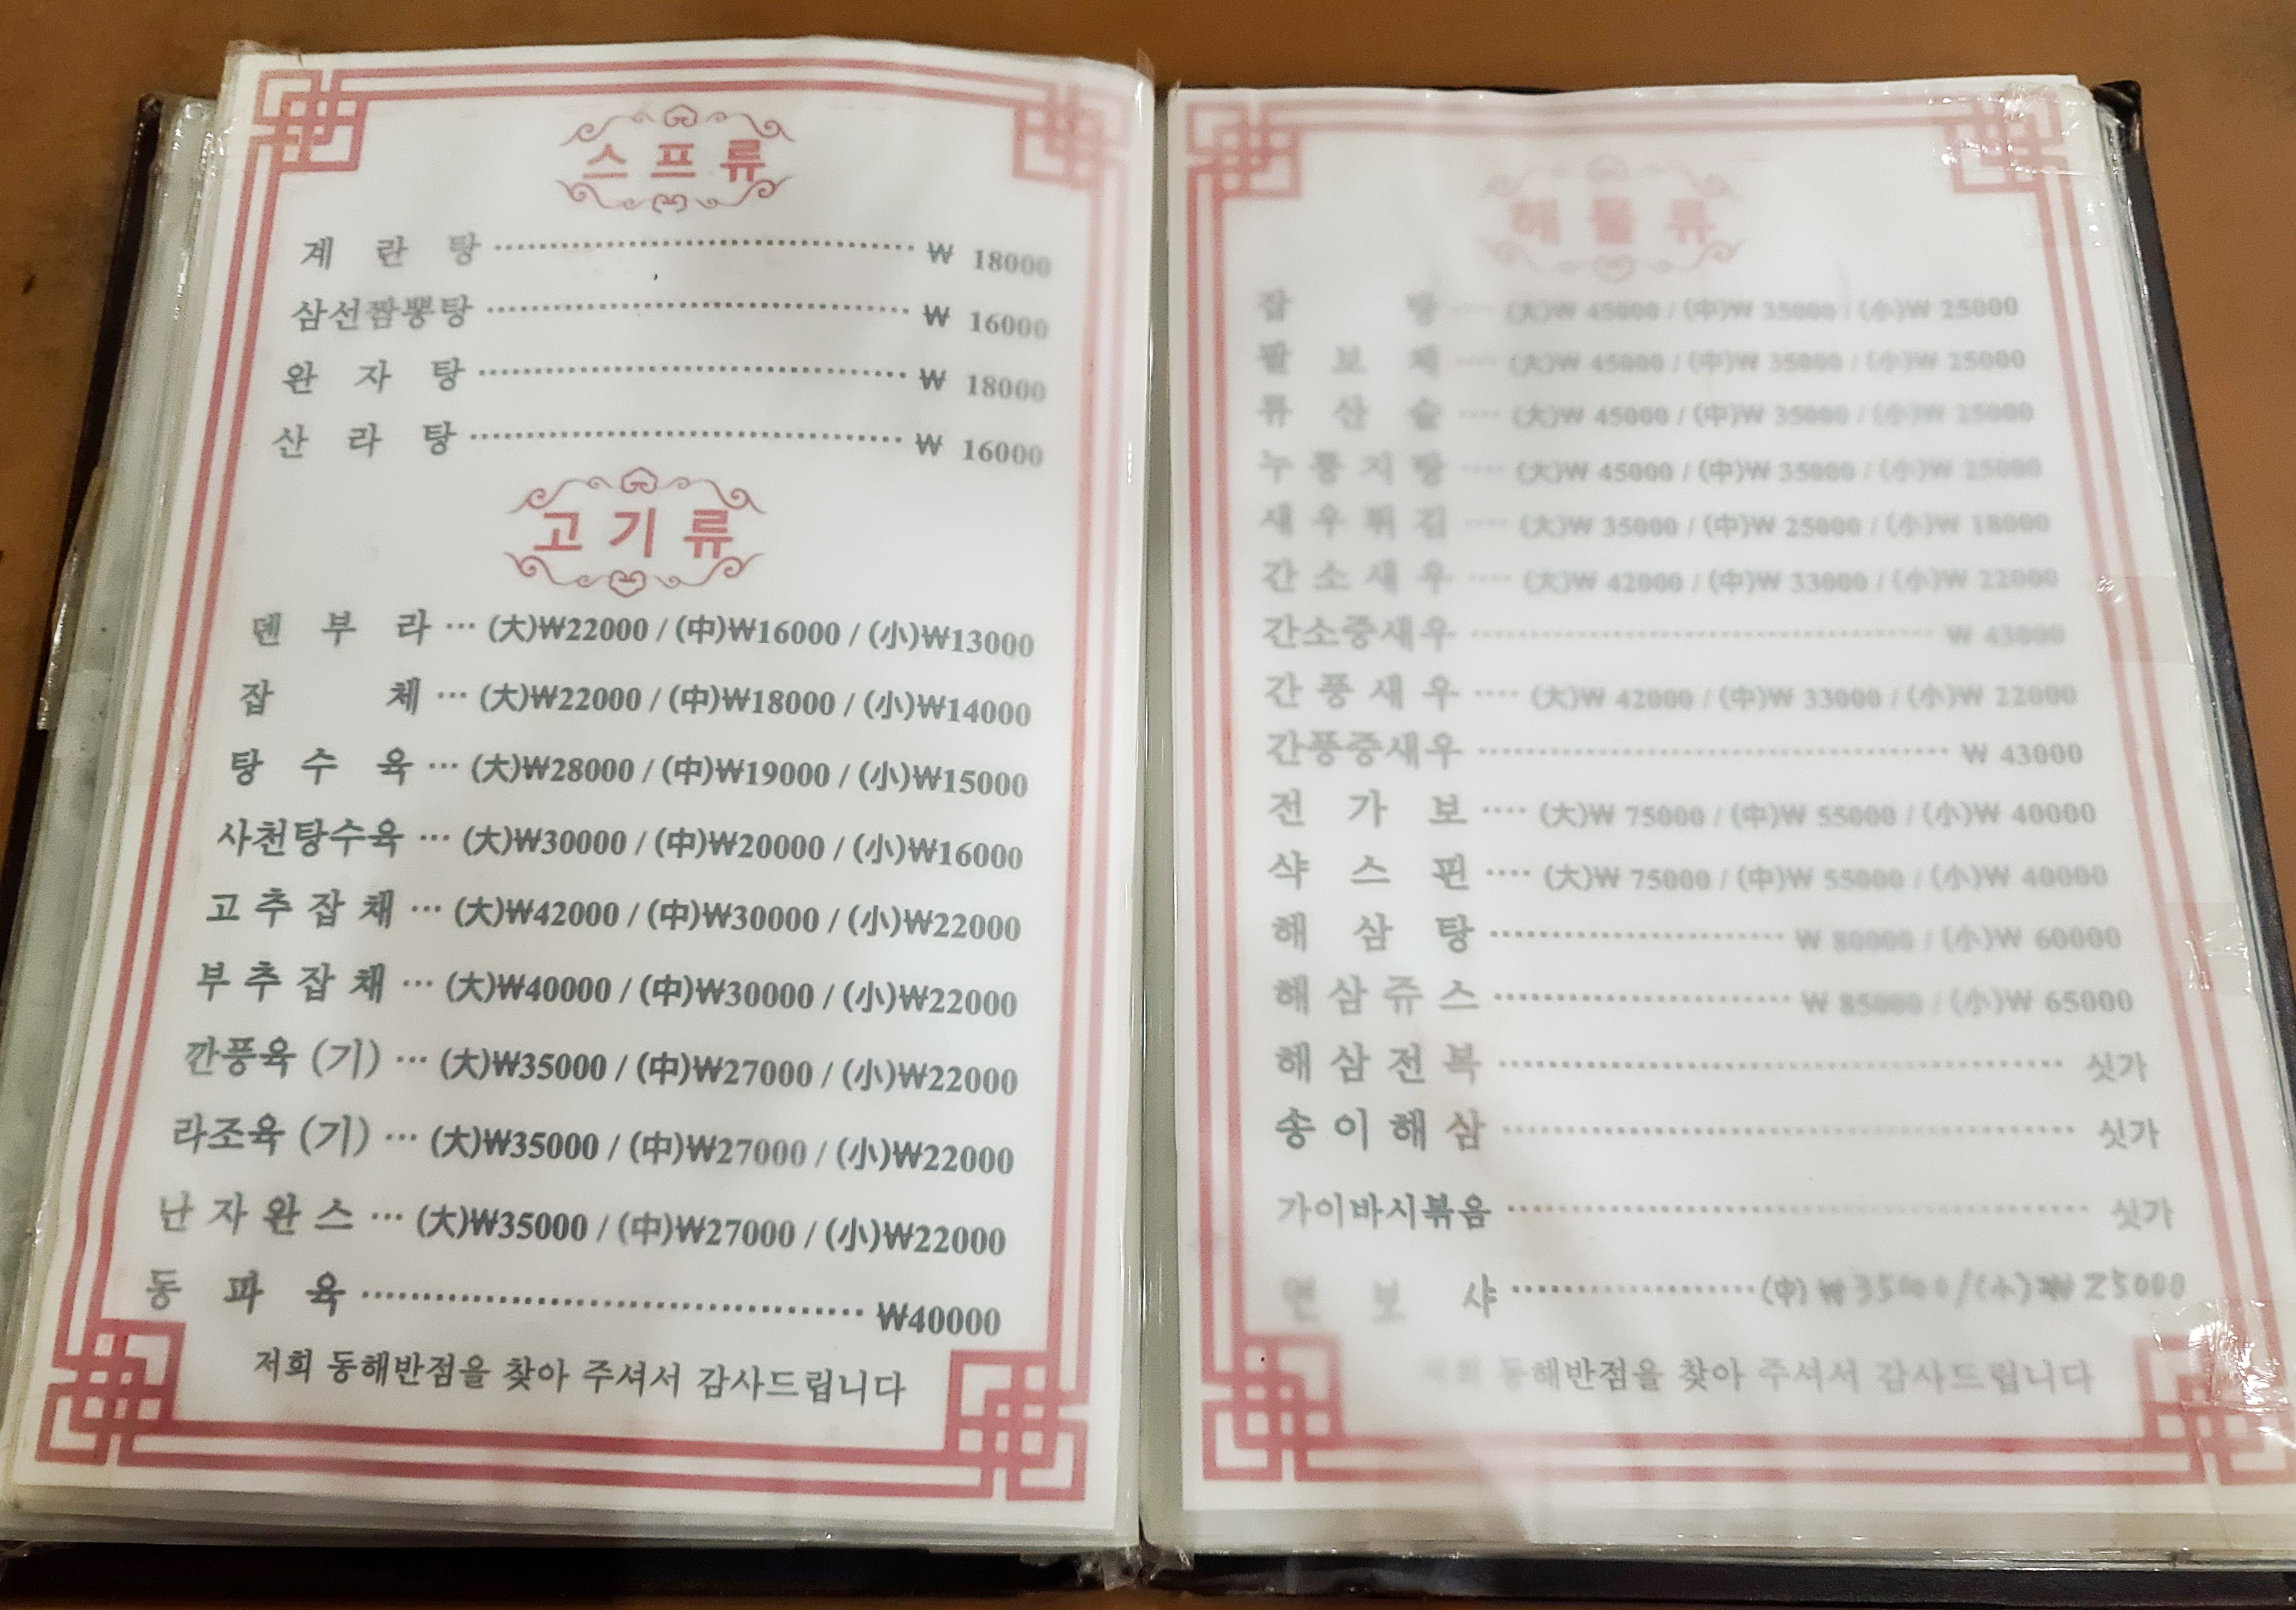 스프류
계 란 탕 ₩ 18000
삼선짬뽕탕 ₩ 16000
완 자 탕 ₩ 18000
산 라 탕 ₩ 16000
고기류
덴 부 라 … (大)₩22000 / (中)₩16000 / (小)₩13000
잡 체 … (大)₩22000 / (中)₩18000 / (小)₩14000
탕 수 육 … (大)₩28000 / (中)₩19000 / (小)₩15000
사천탕수육 … (大)₩30000 / (中)₩20000 / (小)₩16000
고 추 잡 채 … (大)₩42000 / (中)₩30000 / (小)₩22000
부 추 잡 채 … (大)₩40000 / (中)₩30000 / (小)₩22000
깐풍육 (기) … (大)₩35000 / (中)₩27000 / (小)₩22000
라조육 (기) … (大)₩35000 / (中)₩27000 / (小)₩22000
난 자 완 스 … (大)₩35000 / (中)₩27000 / (小)₩22000
동 파 육 ₩40000
저희 동해반점을 찾아 주셔서 감사드립니다
해물류
잡 탕 (大)₩ 45000 / (中)₩ 35000 / (小)₩ 25000
팔 보 채 (大)₩ 45000 / (中)₩ 35000 / (小)₩ 25000
류 산 슬 (大)₩ 45000 / (中)₩ 35000 / (小)₩ 25000
누 룽 지 탕 (大)₩ 45000 / (中)₩ 35000 / (小)₩ 25000
새 우 튀 김 (大)₩ 35000 / (中)₩ 25000 / (小)₩ 18000
간 소 새 우 (大)₩ 42000 / (中)₩ 33000 / (小)₩ 22000
간소중새우 ₩ 43000
간 풍 새 우 (大)₩ 42000 / (中)₩ 33000 / (小)₩ 22000
간풍중새우 ₩ 43000
전 가 보 (大)₩ 75000 / (中)₩ 55000 / (小)₩ 40000
샥 스 핀 (大)₩ 75000 / (中)₩ 55000 / (小)₩ 40000
해 삼 탕 ₩ 80000 / (小)₩ 60000
해 삼 쥬 스 ₩ 85000 / (小)₩ 65000
해 삼 전 복 싯가
송 이 해 삼 싯가
가이바시볶음 싯가
멘 보 샤 (中) ₩ 35000 / (小) ₩ 25000
저희 동해반점을 찾아 주셔서 감사드립니다